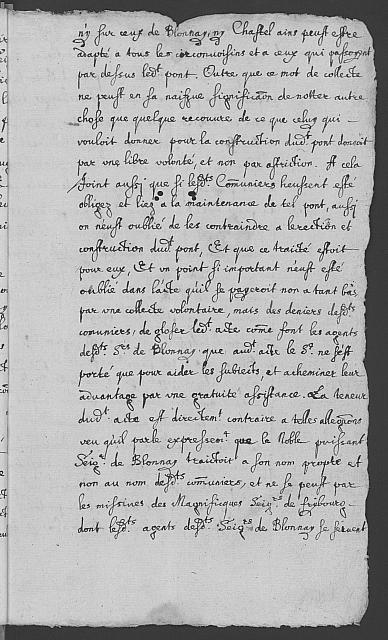 n'y sur ceux de Blonnay, ny Chastel ains peust estre
adapté a tous les circonvoisins et a ceux qui passoyent
par dessus led.t pont. Outre que ce mot de collecte
ne peust en sa naifue significaon de notter autre
chose que quelque recouvre de ce que celuy qui -
vouloit donner pour la construction dud.t pont donoit
par une libre volonté, et non par astriction. A cela
Joint aussy que si lesd.ts Com̄uniers heussent esté
obligez et liez a la maintenance de tel pont, aussy
on n'eust oublié de les contraindre a lerection et
construction dud.t pont, Et que ce traicté estoit
pour eux, Et un point si important n'eust esté
oublié dans l'acte qu'il se payeroit non a tant bas
par une collecte volontaire, mais des deniers desd.ts
com̄uniers, de gloser led.t acte com̄e font les agents
desd.ts S.rs de Blonnay, que aud.t acte le S.r ne s'est
porté que pour aider les subiects, et acheminer leur
advantage par une gratuite assistance. La teneur
dud.t acte est directem.t contraire a telles allegaōns
veu qu'il parle expressem.t que le Noble puissant
Seig.r de Blonnay traictoit a son nom propre et
non au nom desd.ts com̄uniers, et ne se peust par
les missives des Magnificques Seig.rs de fribourg
dont lesd.ts agents desd.ts Seig.rs de Blonnay se servent